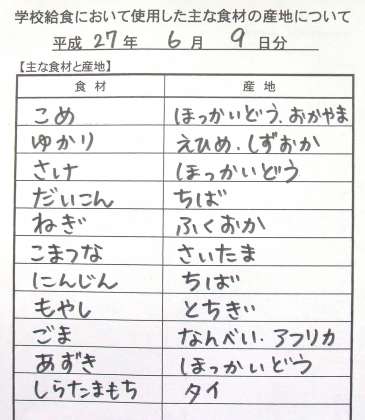 学校給食において使用した主な食材の産地について
平成 27 年 6 月 9 日分
【主な食材と産地】
食材 産地
こめ ほっかいどう、おかやま
ゆかり えひめ・しずおか
さけ ほっかいどう
だいこん ちば
ねぎ ふくおか
こまつな さいたま
にんじん ちば
もやし とちぎ
ごま なんべい・アフリカ
あずき ほっかいどう
しらたまもち タイ